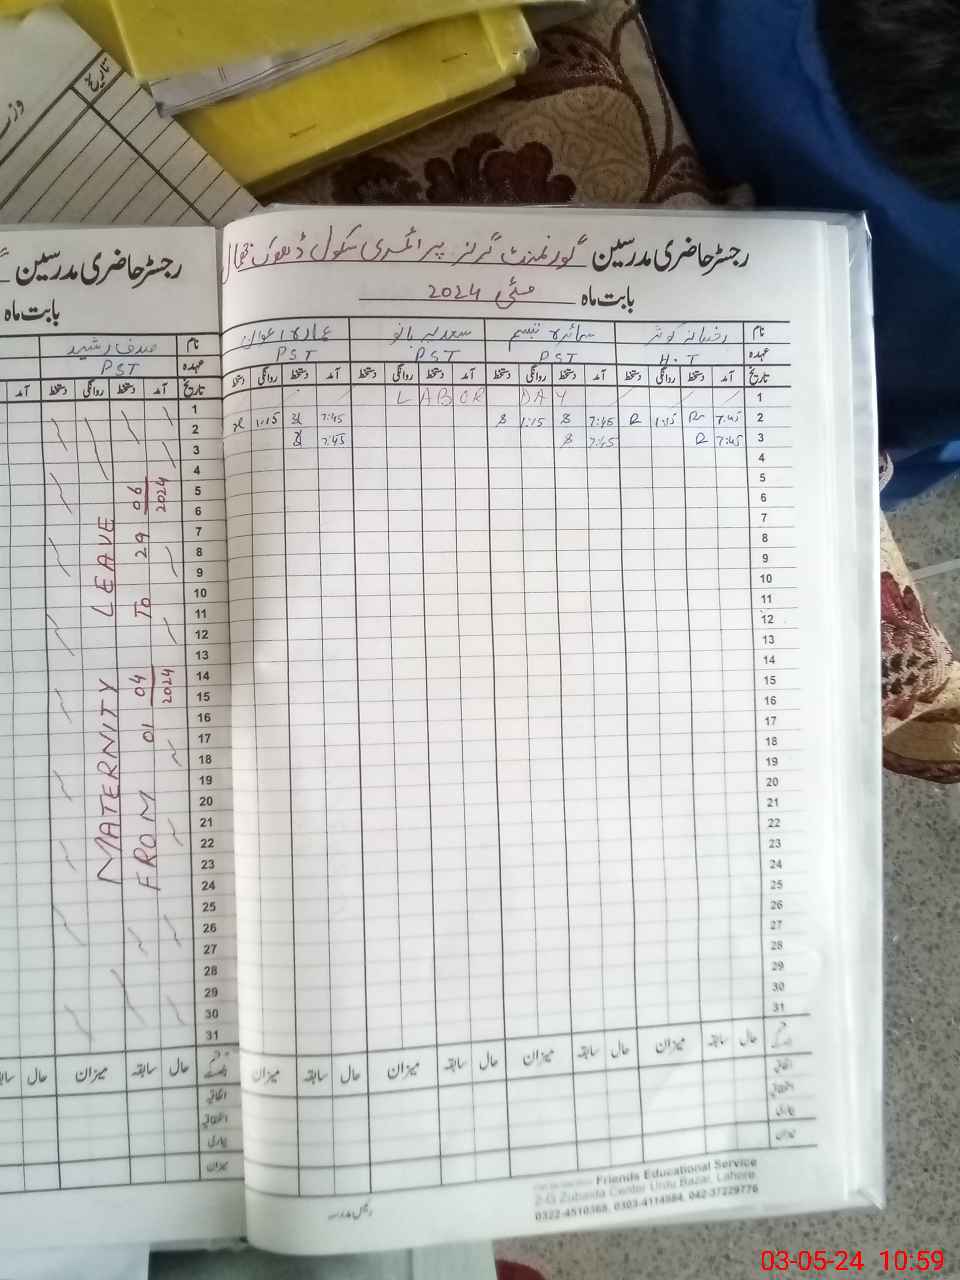 تاریخ
رجسٹر حاضری مدرسین گورنمنٹ گرلز پرائمری سکول ڈھوک
بابت ماہ مئی 2024
نام رخسانہ کوثر سائرہ تبسم سعدیہ بانو عمارہ اعوان
عہدہ H.T PST PST PST
تاریخ آمد دستخط روانگی دستخط آمد دستخط روانگی دستخط آمد دستخط روانگی دستخط آمد دستخط روانگی دستخط
1 LABOR DAY
2 7:45 R 1:15 R 7:45 8 1:15 8 7:45 1:15
3 7:45 R 7:45 8 7:45
4
5
6
7
8
9
10
11
12
13
14
15
16
17
18
19
20
21
22
23
24
25
26
27
28
29
30
31
حال سابقہ میزان حال سابقہ میزان حال سابقہ میزان حال سابقہ میزان
اتفاقیہ
استحقاقیہ
بیماری
میزان
Friends Educational Service
2-G Zubaida Center Urdu Bazar, Lahore
0322-4510368, 0303-4114884, 042-37229776
رئیس مدرسہ
رجسٹر حاضری مدرسین
بابت ماہ
نام صدف رشید
عہدہ PST
تاریخ آمد دستخط روانگی دستخط آمد
1
2
3
4
5
6
7
8
9
10
11
12
13
14
15
16
17
18
19
20
21
22
23
24
25
26
27
28
29
30
31
MATERNITY LEAVE
FROM 01 04 2024 TO 29 06 2024
حال سابقہ میزان حال
اتفاقیہ
استحقاقیہ
بیماری
میزان
03-05-24 10:59